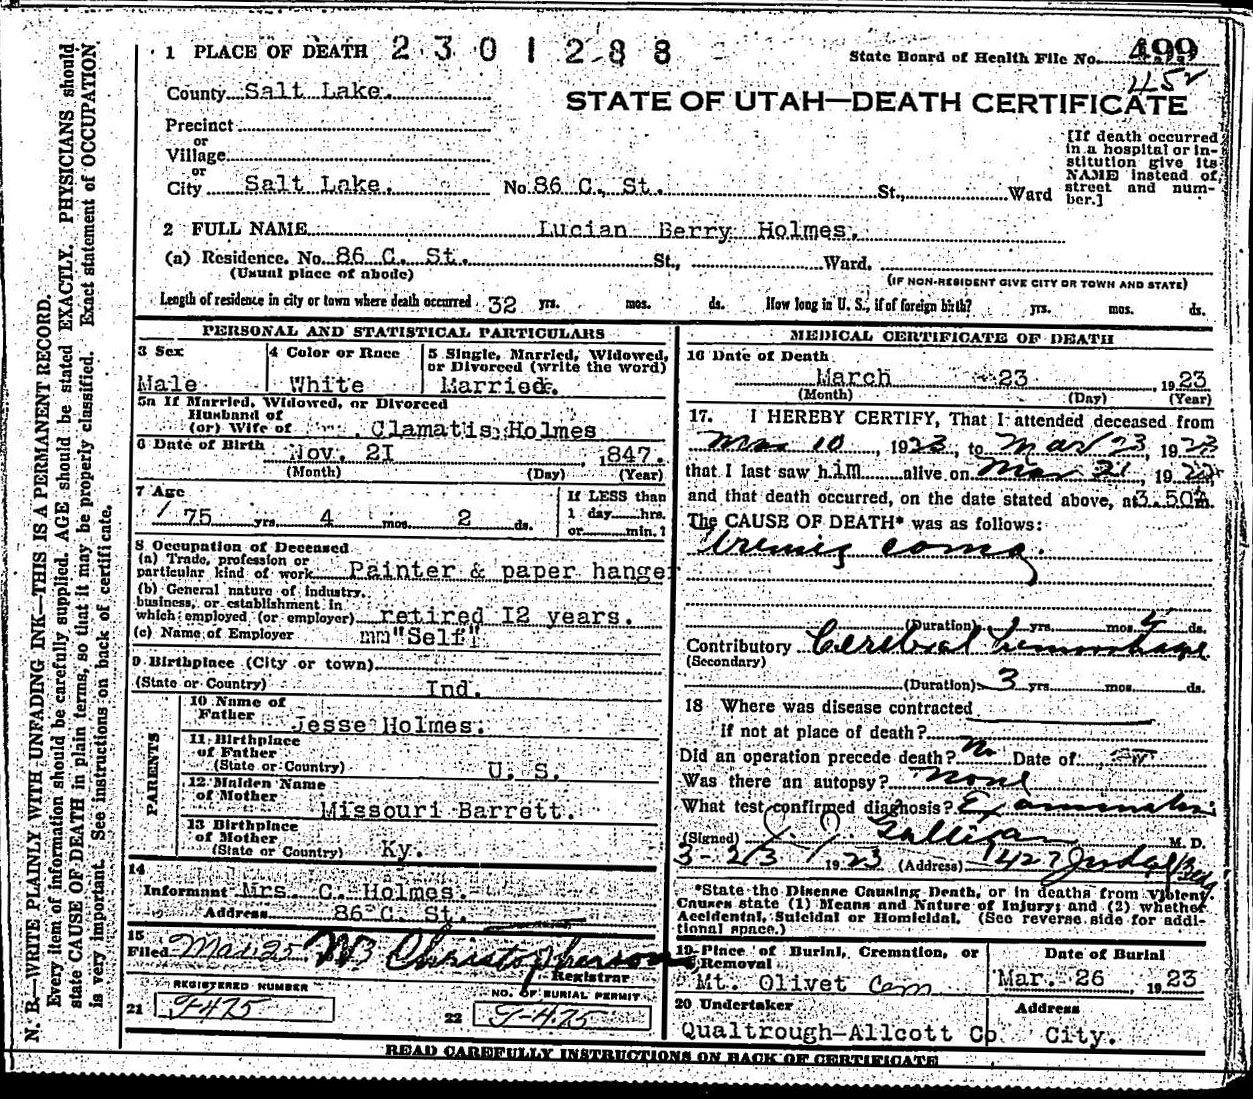 N. B.—WRITE PLAINLY WITH UNFADING INK—THIS IS A PERMANENT RECORD.
Every item of information should be carefully supplied. AGE should be stated EXACTLY. PHYSICIANS should
state CAUSE OF DEATH in plain terms, so that it may be properly classified. Exact statement of OCCUPATION
is very important. See instructions on back of certificate.
1 PLACE OF DEATH 2301288 State Board of Health File No. 499
452
County Salt Lake.
STATE OF UTAH—DEATH CERTIFICATE
Precinct
or
Village
or
City Salt Lake. No 86 C. St. St., Ward
[If death occurred
in a hospital or in-
stitution give its
NAME instead of
street and num-
ber.]
2 FULL NAME Lucian Berry Holmes.
(a) Residence. No. 86 C. St. St., Ward.
(Usual place of abode) (IF NON-RESIDENT GIVE CITY OR TOWN AND STATE)
Length of residence in city or town where death occurred 32 yrs. mos. ds. How long in U. S., if of foreign birth? yrs. mos. ds.
PERSONAL AND STATISTICAL PARTICULARS
3 Sex 4 Color or Race 5 Single, Married, Widowed,
or Divorced (write the word)
Male White Married.
5a If Married, Widowed, or Divorced
Husband of
(or) Wife of Clamatis Holmes
6 Date of Birth Nov. 21 , 1847.
(Month) (Day) (Year)
7 Age If LESS than
1 day hrs.
75 yrs. 4 mos. 2 ds. or min.?
8 Occupation of Deceased
(a) Trade, profession or
particular kind of work Painter & paper hanger
(b) General nature of industry,
business, or establishment in
which employed (or employer) retired 12 years.
(c) Name of Employer mm"Self"
9 Birthplace (City or town)
(State or Country) Ind.
PARENTS
10 Name of
Father Jesse Holmes.
11 Birthplace
of Father
(State or Country) U. S.
12 Maiden Name
of Mother Missouri Barrett.
13 Birthplace
of Mother
(State or Country) Ky.
14
Informant Mrs C. Holmes.
Address 86 C. St.
15
Filed Mar 25 Christopherson
Registrar
REGISTERED NUMBER NO. OF BURIAL PERMIT
21 9-475 22 9-475
MEDICAL CERTIFICATE OF DEATH
16 Date of Death
March 23 , 1923
(Month) (Day) (Year)
17. I HEREBY CERTIFY, That I attended deceased from
Mar 10, 1923, to Mar 23, 1923
that I last saw him alive on Mar 21, 19
and that death occurred, on the date stated above, at 3.50 m.
The CAUSE OF DEATH* was as follows:
Uremic coma.
(Duration) yrs. mos. 4 ds.
Contributory Cerebral hemorrhage
(Secondary)
(Duration) 3 yrs. mos. ds.
18 Where was disease contracted
if not at place of death?
Did an operation precede death? No Date of
Was there an autopsy? None
What test confirmed diagnosis? Examination
(Signed) Galligan M. D.
3-23 1923 (Address) Judge Bldg
*State the Disease Causing Death, or in deaths from Violent
Causes state (1) Means and Nature of Injury; and (2) whether
Accidental, Suicidal or Homicidal. (See reverse side for addi-
tional space.)
19 Place of Burial, Cremation, or
Removal
Date of Burial
Mt. Olivet Cem Mar. 26 , 1923
20 Undertaker Address
Qualtrough-Allcott Co City.
READ CAREFULLY INSTRUCTIONS ON BACK OF CERTIFICATE